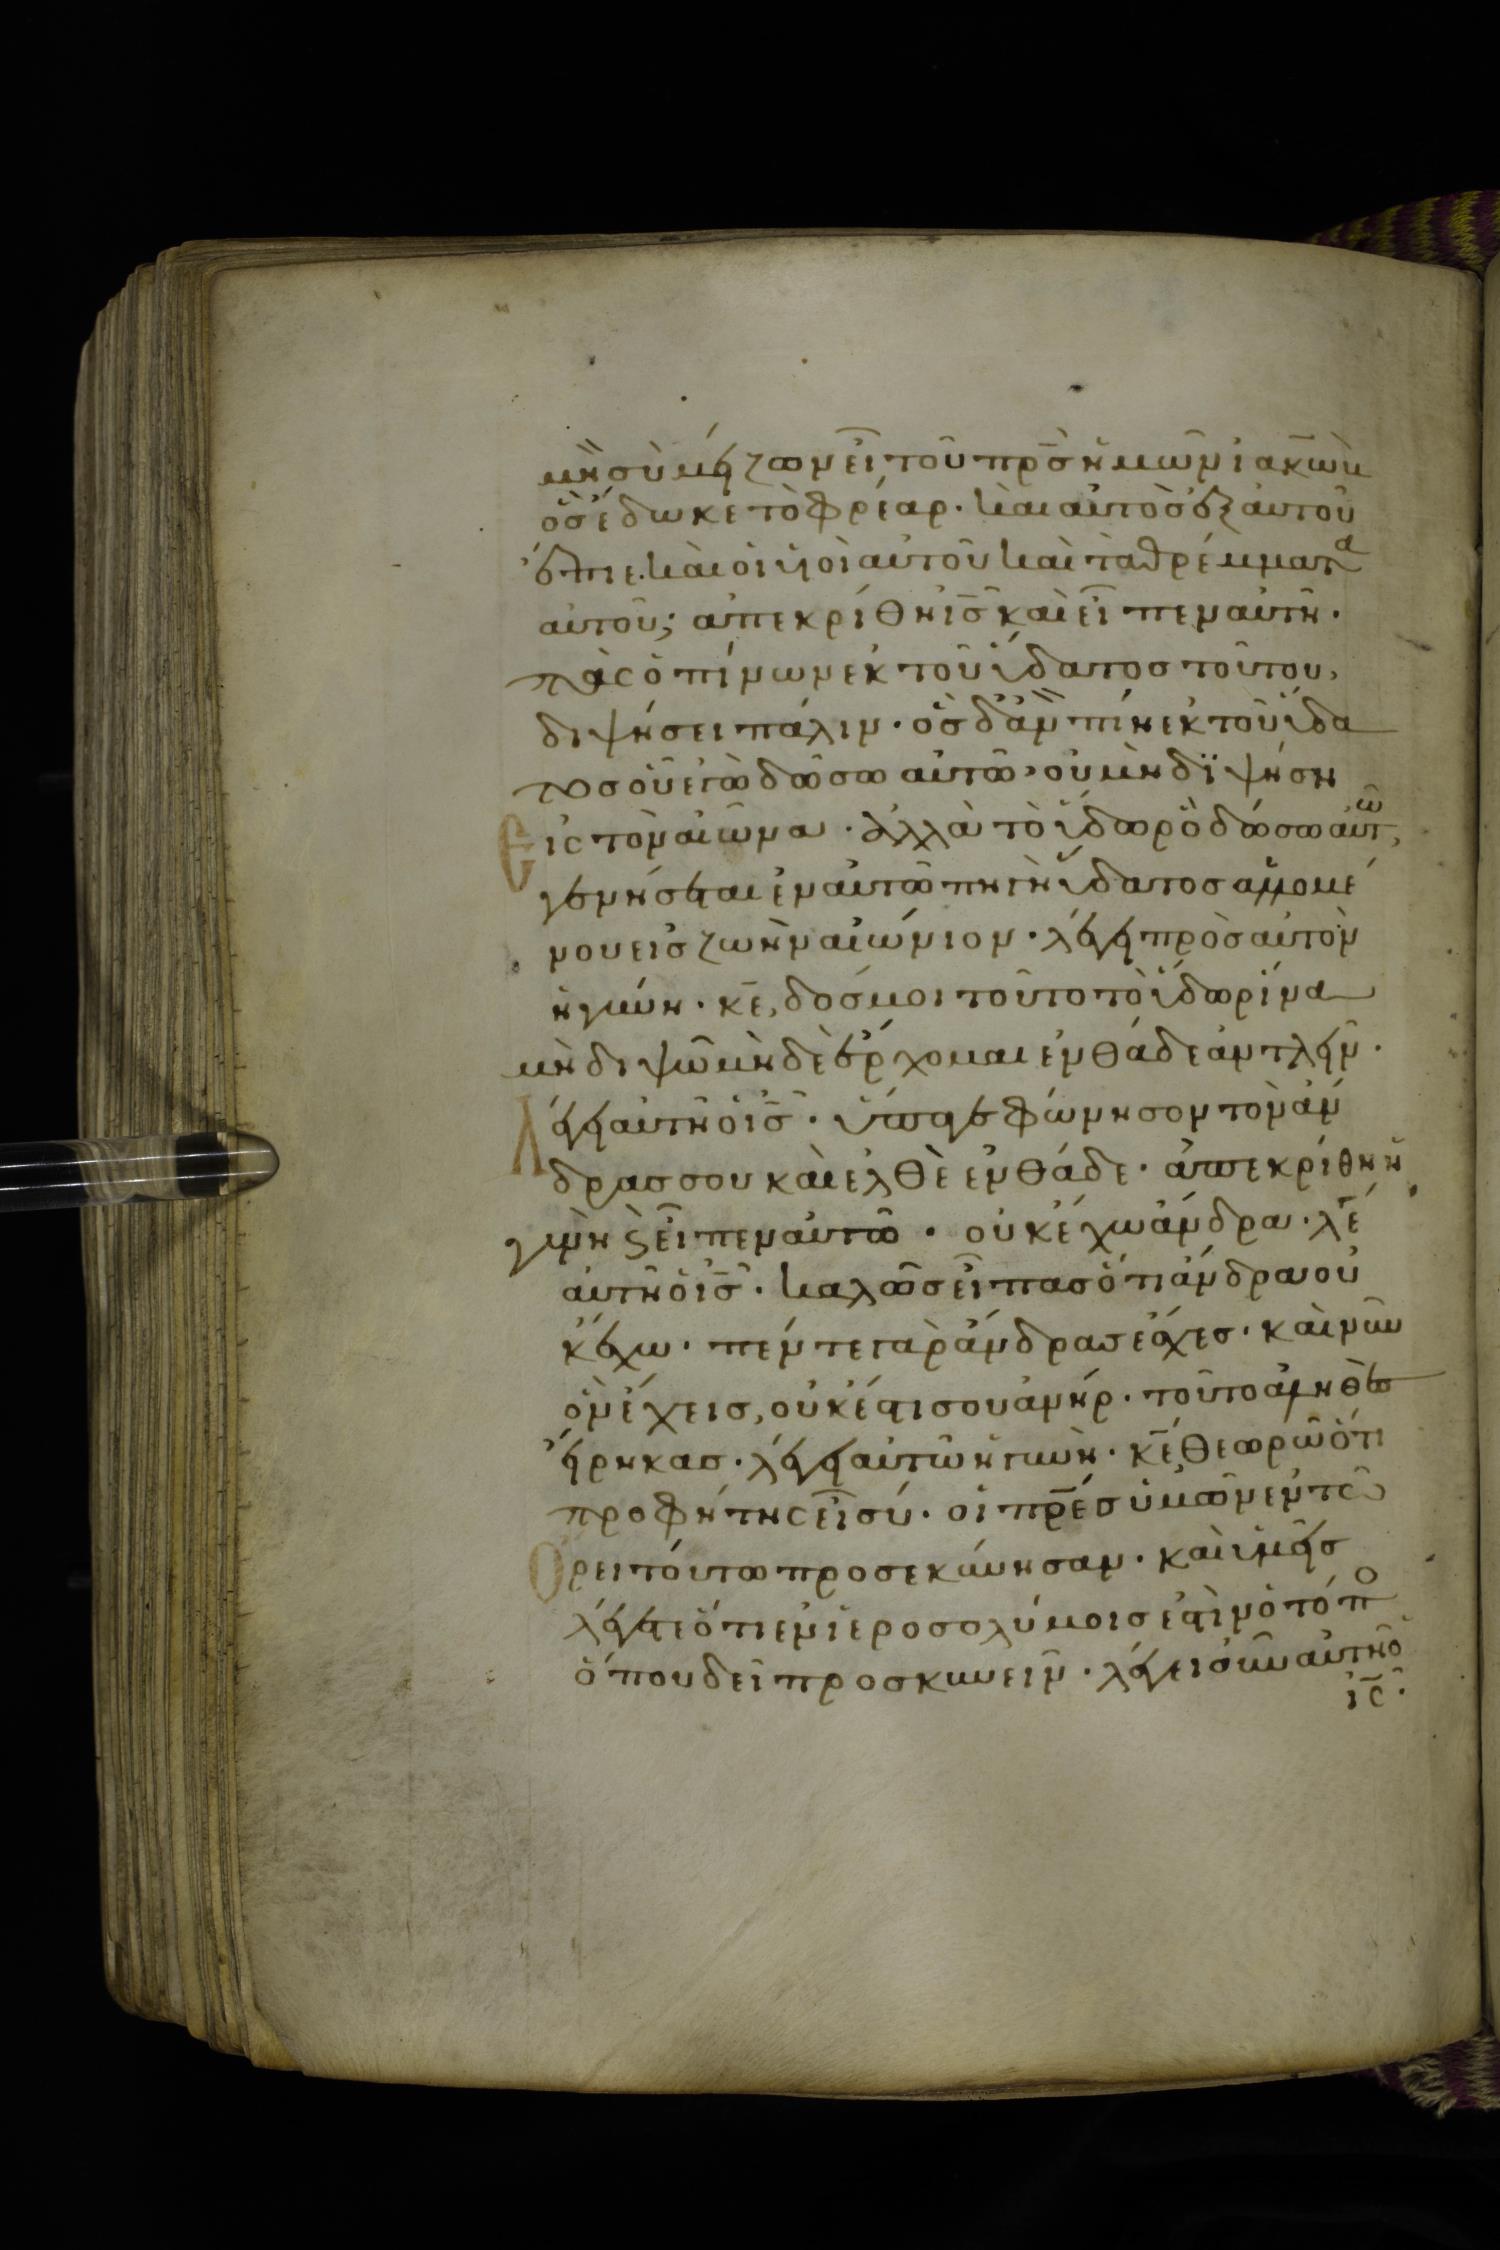 μὴ σὺ μείζων εἶ τοῦ πρ̅ς ἡμῶν ἰακὼβ
ὃς ἔδωκε τὸ φρέαρ· καὶ αὐτὸς ἐξ αὐτοῦ
ἔπιε. καὶ οἱ υἱοὶ αὐτοῦ καὶ τὰ θρέμματα
αὐτοῦ; ἀπεκρίθη ι̅ς̅ καὶ εἶπεν αὐτῆ·
πᾶς ὁ πίνων ἐκ τοῦ ὕδατος τούτου,
διψήσει πάλιν· ὃς δ' ἂν πίη ἐκ τοῦ ὕδα
τος οὗ ἐγὼ δώσω αὐτῶ, οὐ μὴ διψήση
εἰς τὸν αἰῶνα· ἀλλὰ τὸ ὕδωρ ὃ δώσω αὐτῶ,
γενήσεται ἐν αὐτῶ πηγὴ ὕδατος ἁλλομέ
νου εἰς ζωὴν αἰώνιον· λέγει πρὸς αὐτὸν
ἡ γυνή· κ̅ε̅, δός μοι τοῦτο τὸ ὕδωρ ἵνα
μὴ διψῶ μὴ δὲ ἔρχομαι ἐνθάδε ἀντλεῖν·
λέγει αὐτῆ ὁ ι̅ς̅· ὕπαγε φώνησον τὸν ἄν
δρα σου καὶ ἐλθὲ ἐνθάδε· ἀπεκρίθη ἡ
γυνὴ ϛ εἶπεν αὐτῶ· οὐκ ἔχω ἄνδρα· λέ
αὐτῆ ὁ ι̅ς̅· καλῶς εἶπας ὅτι ἄνδρα οὐ
κ ἔχω· πέντε γὰρ ἄνδρας ἔσχες· καὶ νῦν
ὃν ἔχεις, οὐκ ἔστι σου ἀνήρ· τοῦτο ἀληθὲς
εἴρηκας· λέγει αὐτῶ ἡ γυνή· κ̅ε̅ θεωρῶ ὅτι
προφήτης εἶ σύ· οἱ πρ̅ες ὑμῶν ἐν τῶ
ὄρει τούτω προσεκύνησαν· καὶ ὑμεῖς
λέγετε ὅτι ἐν ἱεροσολύμοις ἐστὶν ὁ τόπο
ὅπου δεῖ προσκυνεῖν· λέγει οὖν αὐτῆ ὁ
ι̅ς̅·